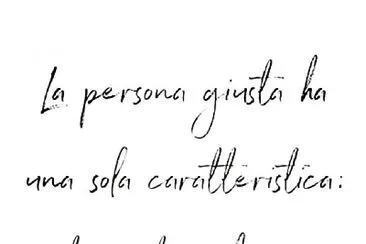 La persona giusta ha
una sola caratteristica: